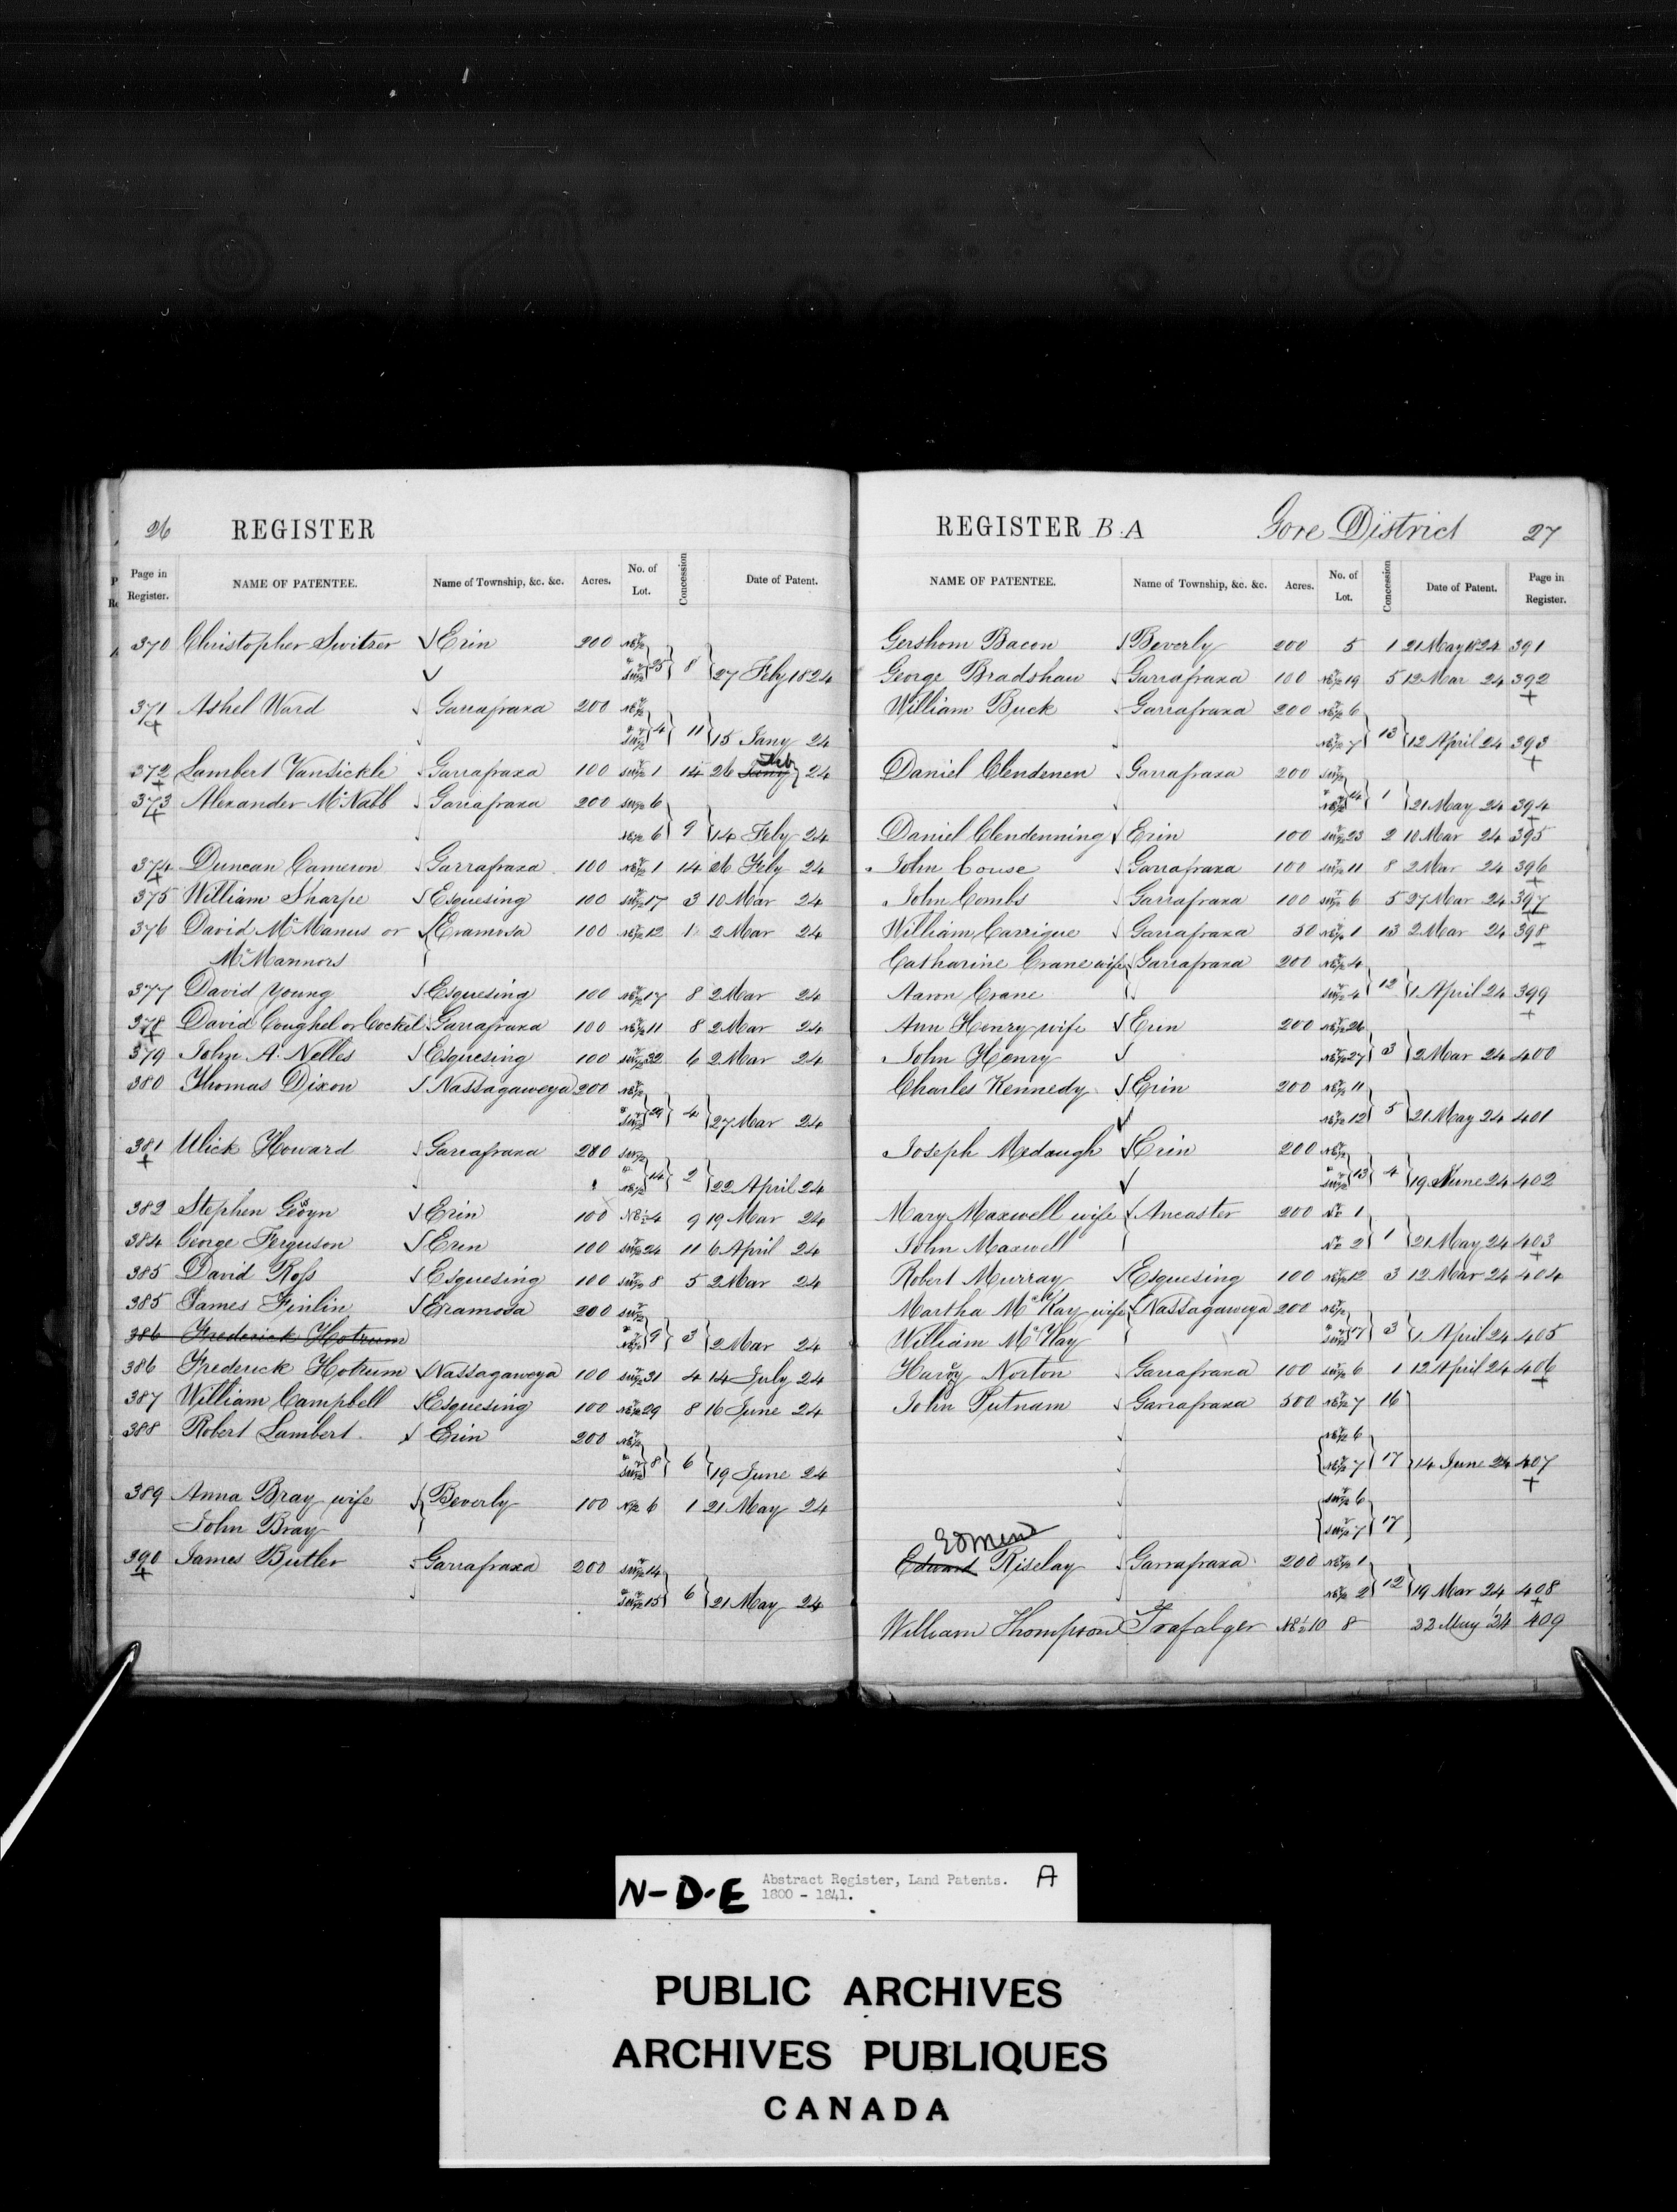 26 REGISTER
Page in Register. NAME OF PATENTEE. Name of Township, &c. &c. Acres. No. of Lot. Concession Date of Patent.
370 Christopher Switzer Erin 200 NE½
& SW½ } 25 } 8 } 27 Feby 1824
371 Ashel Ward Garrafraxa 200 NE½
& SW½ } 4 } 11 } 15 Jany 24
Feb
372 Lambert Vansickle Garrafraxa 100 SW½ 1 14 26 Jany 24
373 Alexander McNabb Garrafraxa 200 SW½ 6
NE½ 6 } 9 } 14 Feby 24
374 Duncan Cameron Garrafraxa 100 NE½ 1 14 26 Feby 24
375 William Sharpe Esquesing 100 SW½ 17 3 10 Mar 24
376 David McManus or Eramosa 100 NE½ 12 1 2 Mar 24
McMannors
377 David Young Esquesing 100 NE½ 17 8 2 Mar 24
378 David Coughel or Cockel Garrafraxa 100 NE½ 11 8 2 Mar 24
379 John A. Nelles Esquesing 100 SW½ 32 6 2 Mar 24
380 Thomas Dixon Nassagaweya 200 NE½
& SW½ } 29 } 4 } 27 Mar 24
381 Ulick Howard Garrafraxa 200 SW½
& NE½ } 14 } 2 } 22 April 24
382 Stephen Erin 100 NE½ 4 9 19 Mar 24
384 George Ferguson Erin 100 SW½ 24 11 6 April 24
385 David Ross Esquesing 100 SW½ 8 5 2 Mar 24
385 James Finlin Eramosa 200 SW½
386 Frederick Hotrum & NE½ } 9 } 3 } 2 Mar 24
386 Frederick Hotrum Nassagaweya 100 SW½ 31 4 14 July 24
387 William Campbell Esquesing 100 NE½ 29 8 16 June 24
388 Robert Lambert Erin 200 NE½
& SW½ } 8 } 6 } 19 June 24
389 Anna Bray wife Beverly 100 N½ 6 1 21 May 24
John Bray
390 James Butler Garrafraxa 200 SW½ 14
& SW½ 15 } 6 } 21 May 24
REGISTER B.A Gore District 27
NAME OF PATENTEE. Name of Township, &c. &c. Acres. No. of Lot. Concession Date of Patent. Page in Register.
Gershom Bacon Beverly 200 5 1 21 May 1824 391
George Bradshaw Garrafraxa 100 NE½ 19 5 12 Mar 24 392
William Buck Garrafraxa 200 NE½ 6
NE½ 7 } 13 } 12 April 24 393
Daniel Clendenen Garrafraxa 200 SW½
& NE½ } 14 } 1 } 21 May 24 394
Daniel Clendenning Erin 100 SW½ 23 2 10 Mar 24 395
John Couse Garrafraxa 100 SW½ 11 8 2 Mar 24 396
John Combs Garrafraxa 100 SW½ 6 5 27 Mar 24 397
William Carrigue Garrafraxa 50 NE½ 1 13 2 Mar 24 398
Catharine Crane wife Garrafraxa 200 NE½ 4
Aaron Crane SW½ 4 } 12 } 1 April 24 399
Ann Henry wife Erin 200 NE½ 26
John Henry NE½ 27 } 3 } 2 Mar 24 400
Charles Kennedy Erin 200 NE½ 11
NE½ 12 } 5 } 21 May 24 401
Joseph Medaugh Erin 200 NE½
& SW½ } 13 } 4 } 19 June 24 402
Mary Maxwell wife Ancaster 200 No 1
John Maxwell No 2 } 1 } 21 May 24 403
Robert Murray Esquesing 100 NE½ 12 3 12 Mar 24 404
Martha McKay wife Nassagaweya 200 NE½
William McKay & SW½ } 17 } 3 } 1 April 24 405
Norton Garrafraxa 100 SW½ 6 1 12 April 24 406
John Putnam Garrafraxa 500 NE½ 7 16
NE½ 6
NE½ 7 } 17 } 14 June 24 407
SW½ 6
SW½ 7 } 17
Edmund
Edward Riselay Garrafraxa 200 NE½ 1
NE½ 2 } 12 } 19 Mar 24 408
William Thompson Trafalger NE½ 10 8 22 May 24 409
N-D-E Abstract Register, Land Patents. A
1800 - 1841.
PUBLIC ARCHIVES
ARCHIVES PUBLIQUES
CANADA